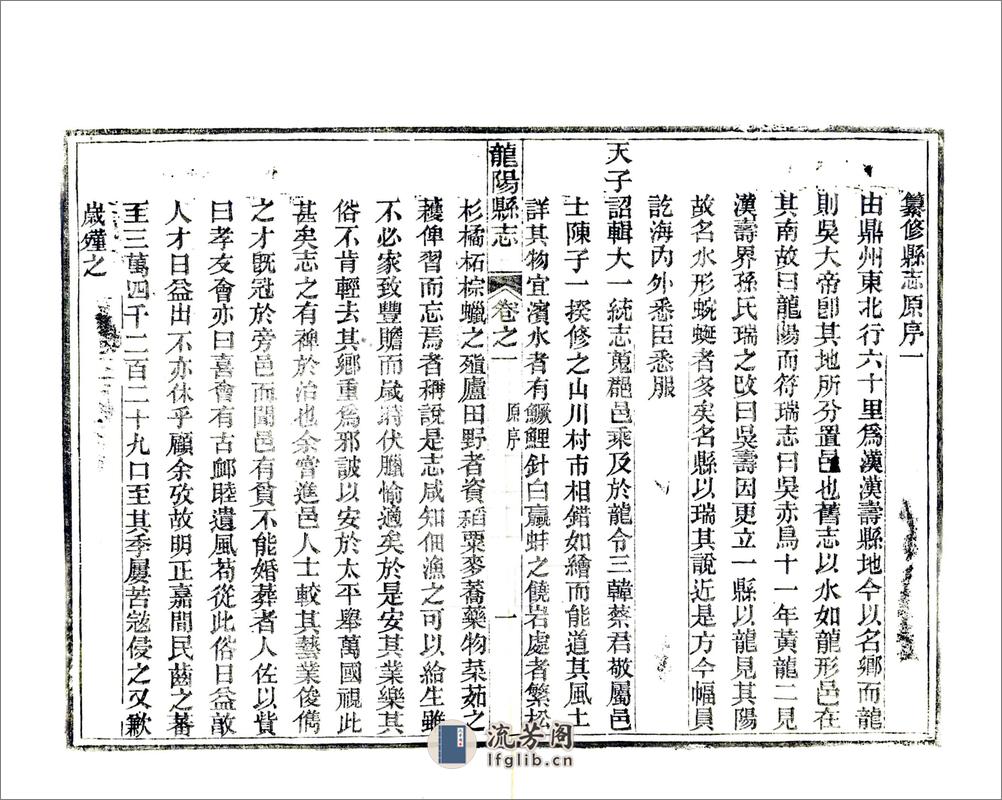 纂修縣志原序一
由鼎州東北行六十里爲漢漢壽縣地今以名鄉而龍
則吳大帝卽其地所分置邑也舊志以水如龍形邑在
其南故曰龍陽而符瑞志曰吳赤烏十一年黃龍二見
漢壽界孫氏瑞之改曰吳壽因更立一縣以龍見其陽
故名水形蜿蜒者多矣名縣以瑞其說近是方今幅員
訖海內外悉臣悉服
天子詔輯大一統志蒐郡邑乘及於龍令三韓蔡君敬屬邑
士陳子一揆修之山川村市相錯如繪而能道其風土
詳其物宜濱水者有鱖鯉針白蠃蚌之饒岩處者繁松
龍陽縣志 卷之一 原序 一
杉橘柘棕蠟之殖廬田野者資稻粟麥蕎藥物菜茹之
穫俾習而忘焉者稱說是志咸知佃漁之可以給生雖
不必家致豐贍而歲時伏臘愉適矣於是安其業樂其
俗不肯輕去其鄉重爲邪詖以安於太平舉萬國視此
甚矣志之有裨於治也余嘗進邑人士較其藝業俊儁
之才旣冠於旁邑而聞邑有貧不能婚葬者人佐以貲
曰孝友會亦曰喜會有古鄉睦遺風苟從此俗日益敦
人才日益出不亦休乎顧余攷故明正嘉間民齒之蕃
至三萬四千二百二十九口至其季屢苦寇侵之又歉
歲殣之
流芳阁
lfglib.cn